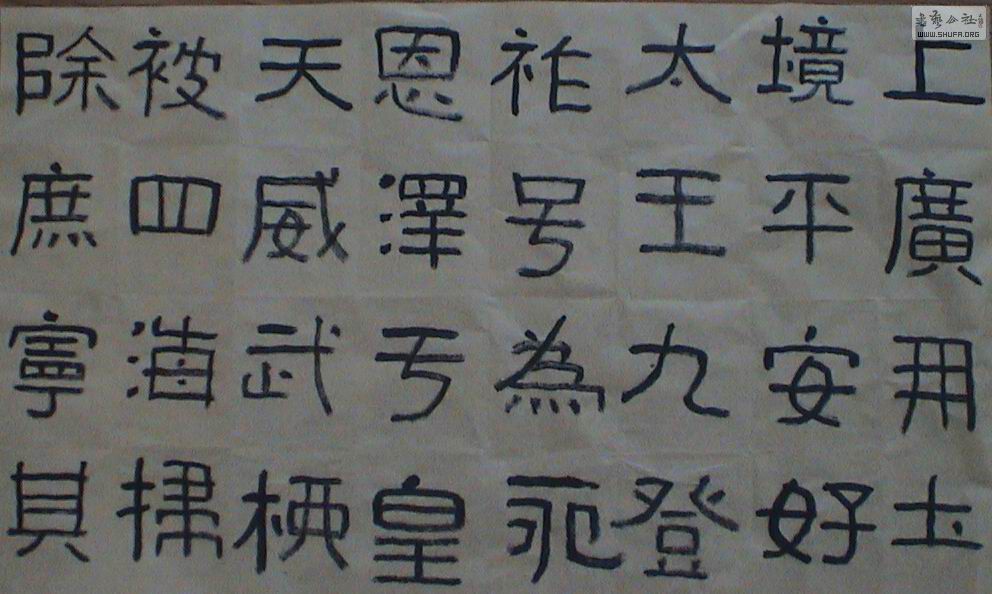 上廣開土
境平安好
太王九登
祚号為永
恩澤亏皇
天威武
被四海掃
除庶寧其
書藝公社
WWW.SHUFA.ORG